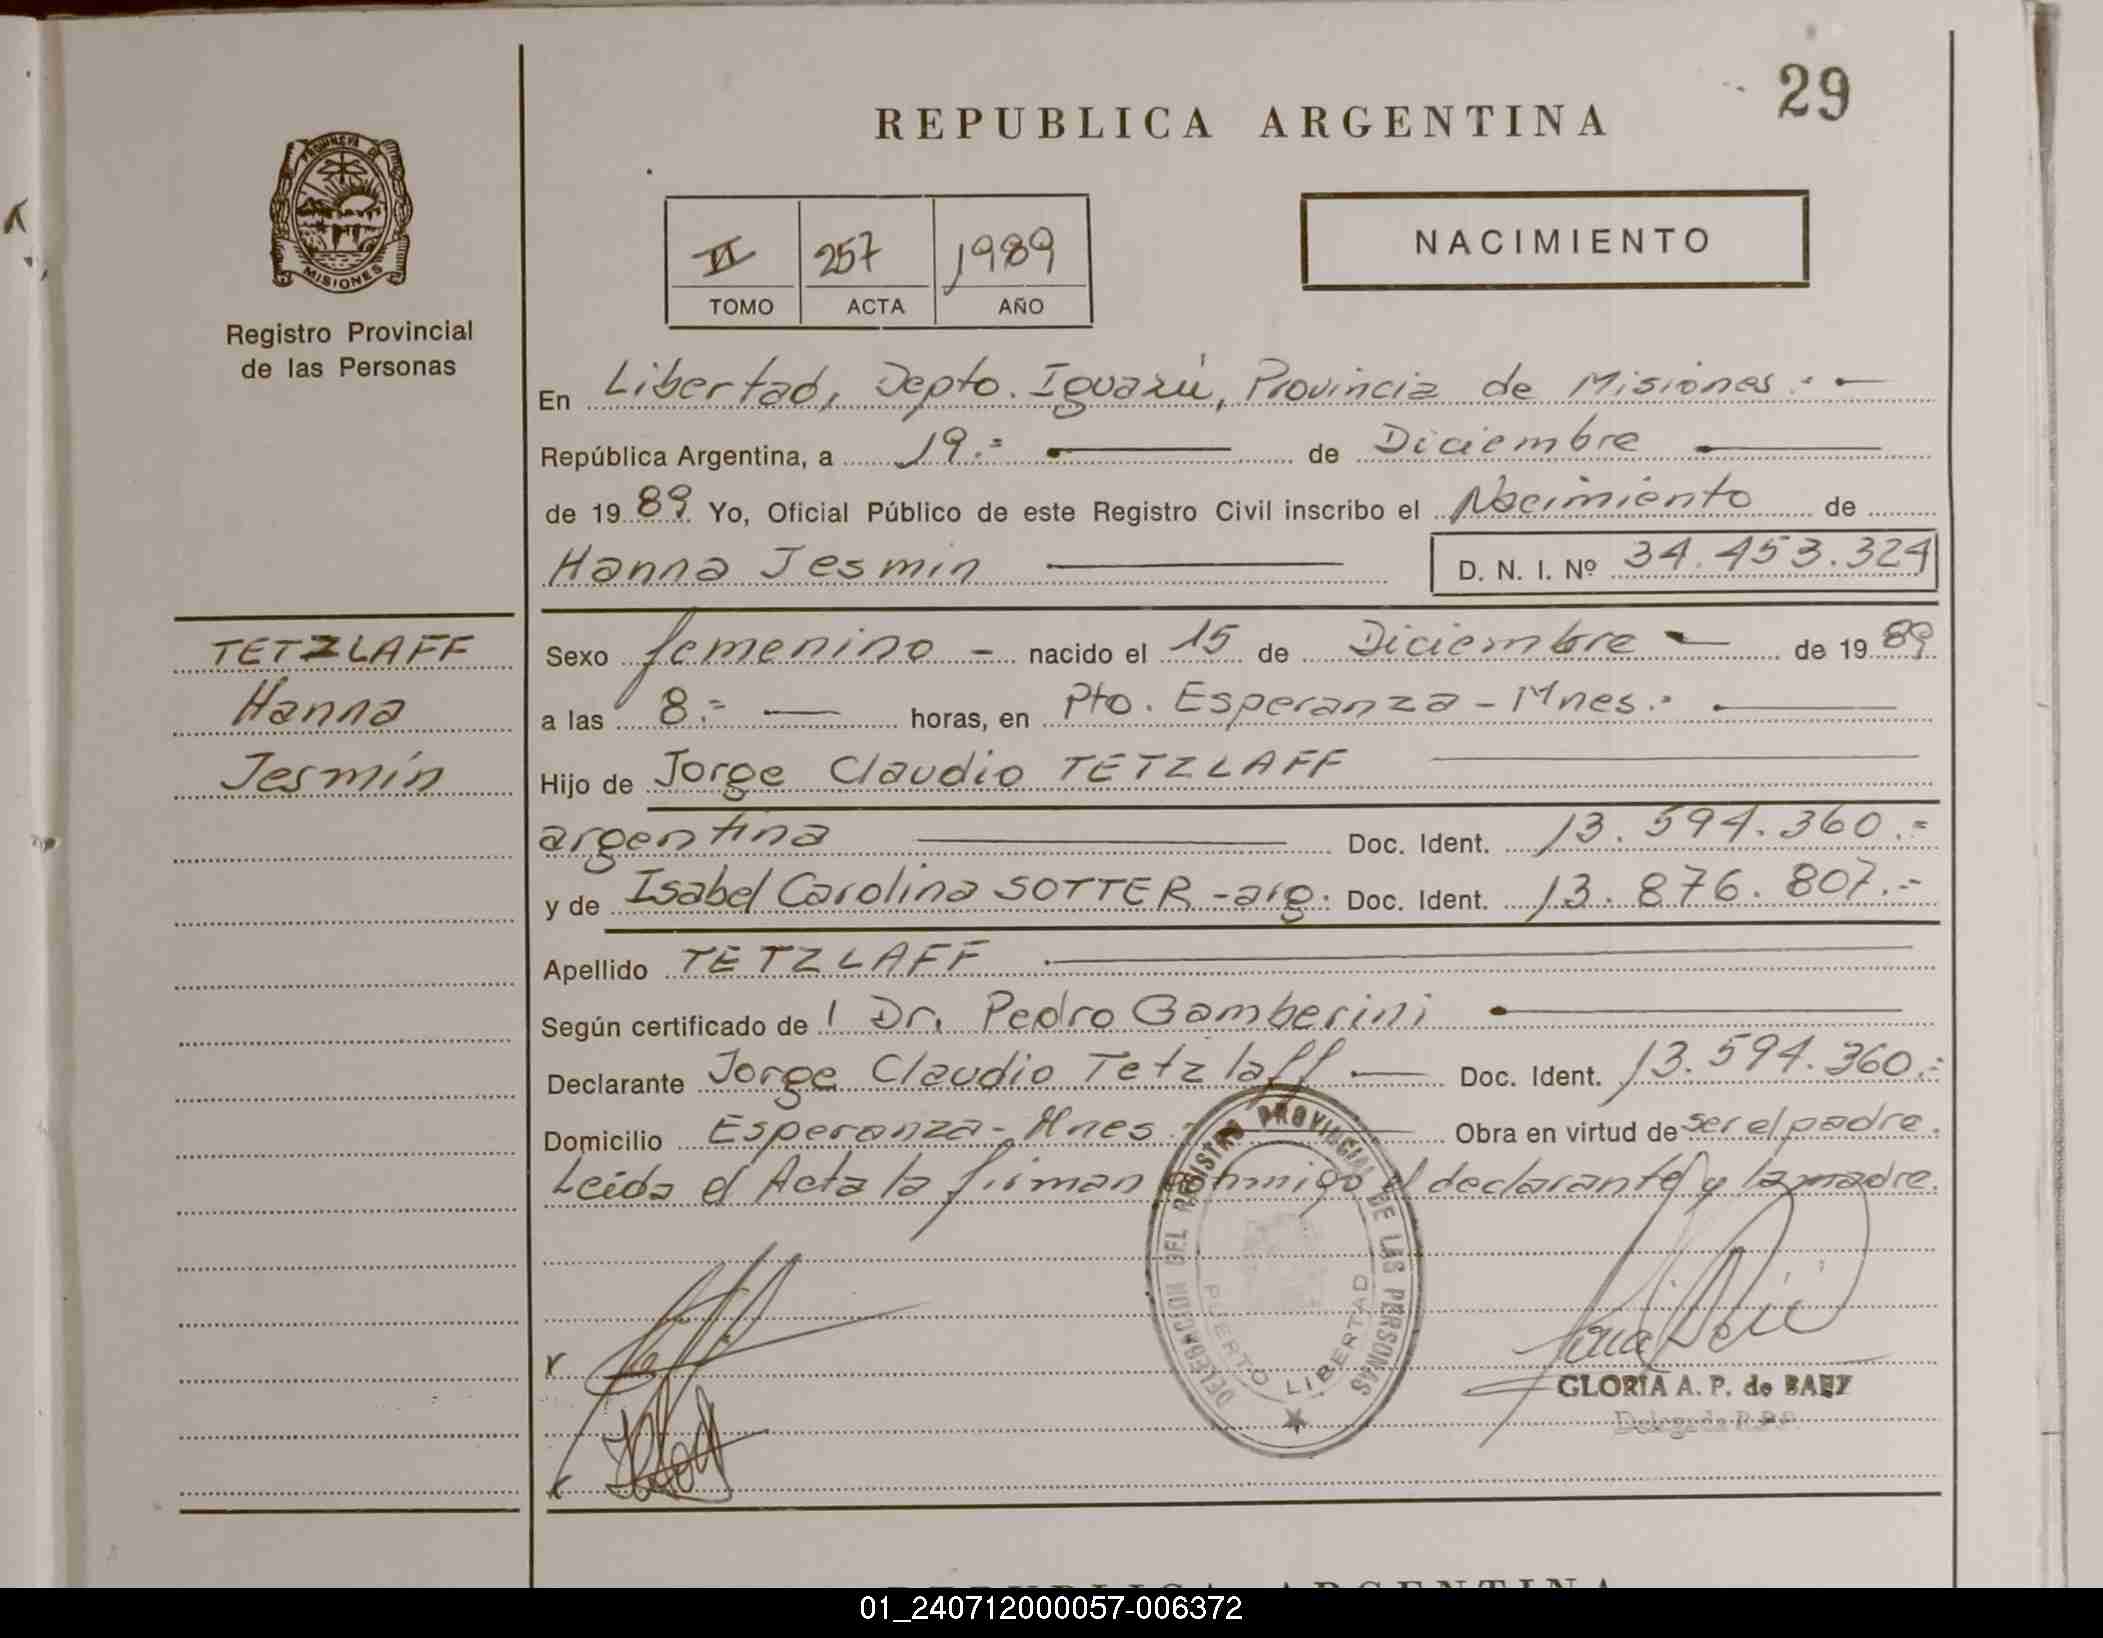 29
REPUBLICA ARGENTINA
PROVINCIA DE
MISIONES
Registro Provincial
de las Personas
II 257 1989
TOMO ACTA AÑO
NACIMIENTO
En Libertad, Depto. Iguazú, Provincia de Misiones.-
República Argentina, a 19.= de Diciembre
de 1989 Yo, Oficial Público de este Registro Civil inscribo el Nacimiento de
Hanna Jesmin D. N. I. Nº 34.453.324
TETZLAFF
Hanna
Jesmín
Sexo femenino - nacido el 15 de Diciembre de 1989
a las 8.= horas, en Pto. Esperanza - Mnes.-
Hijo de Jorge Claudio TETZLAFF
argentina Doc. Ident. 13.594.360.=
y de Isabel Carolina SOTTER - arg. Doc. Ident. 13.876.807.-
Apellido TETZLAFF
Según certificado de l Dr. Pedro Gamberini
Declarante Jorge Claudio Tetzlaff Doc. Ident. 13.594.360.=
Domicilio Esperanza - Mnes. Obra en virtud de ser el padre.
Leída el Acta la firman conmigo el declarante y la madre.
DELEGACION DEL REGISTRO PROVINCIAL DE LAS PERSONAS
PUERTO LIBERTAD
GLORIA A. P. de BAEZ
Delegada R.P.P.
REPUBLICA ARGENTINA
01_240712000057-006372